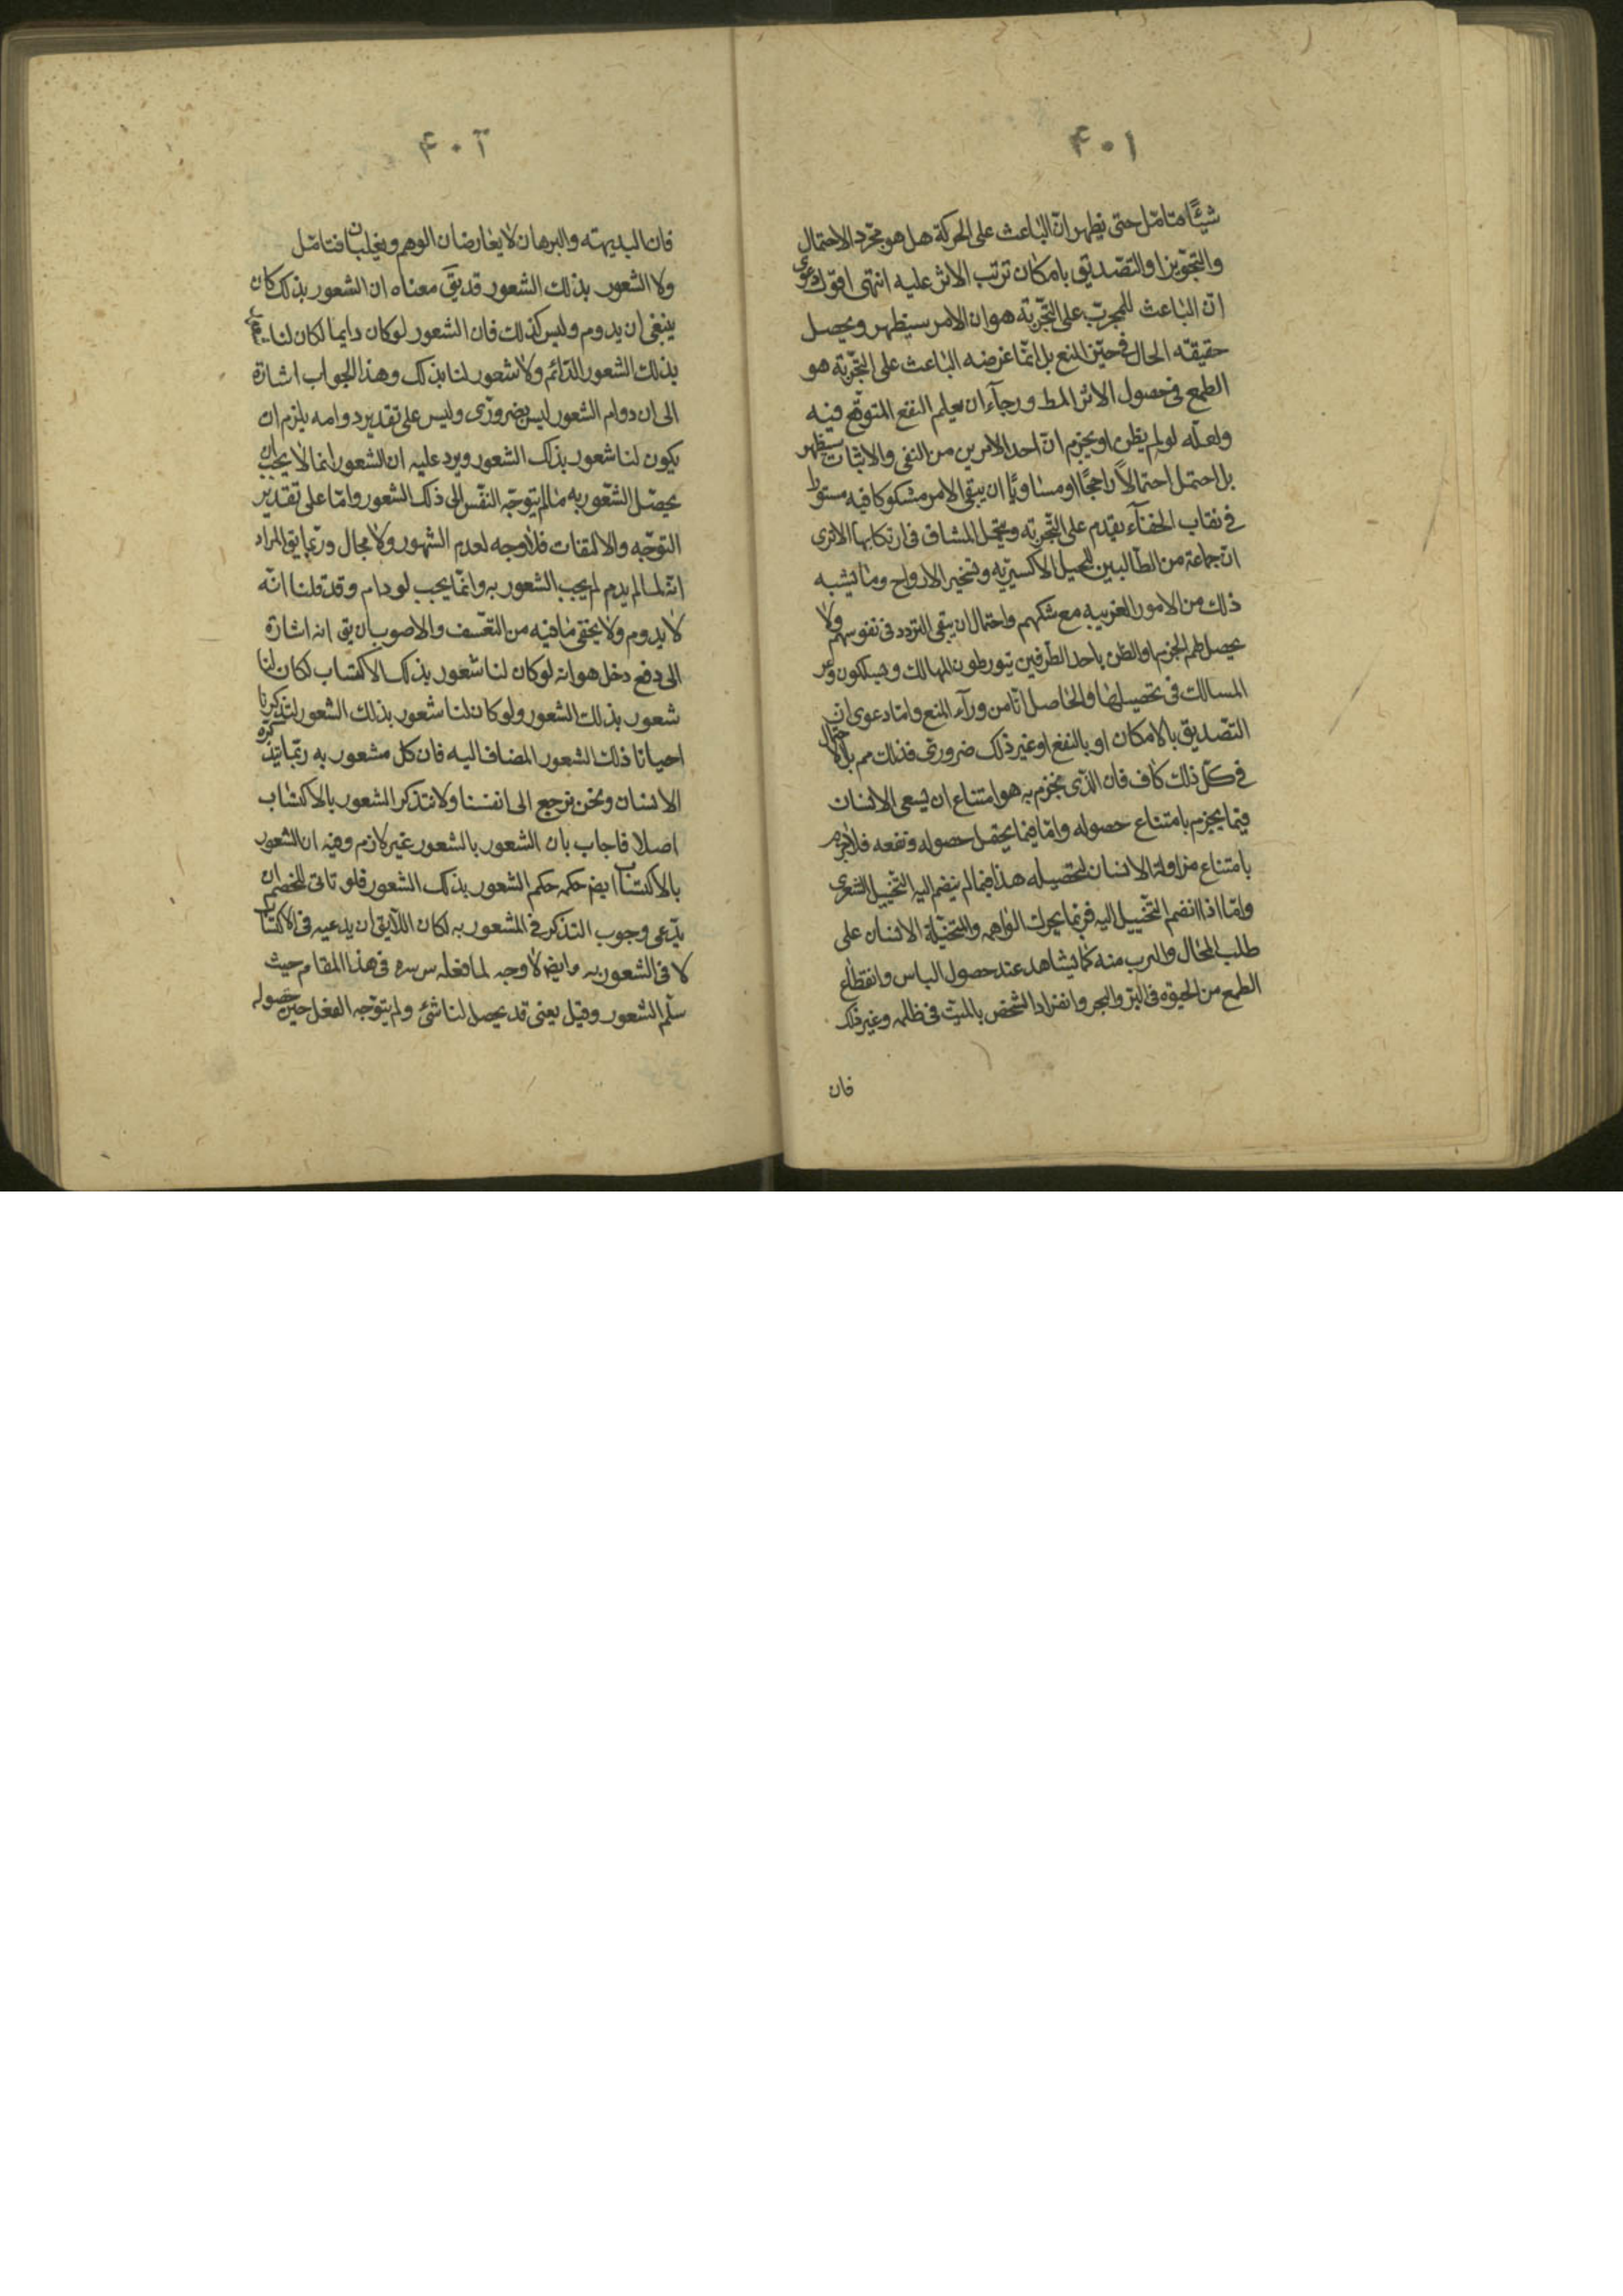 ۴۰۱
شيئًا متامّل حتى يظهر انّ الباعث على الحركة هل هو مجرّد الاحتمال
والتجويز او التصديق بامكان ترتب الاثر عليه انتهى اقول دعوى
انّ الباعث للمجرب على التجربة هو ان الامر سيظهر ويحصل
حقيقة الحال فى حيّز المنع بل انّما غرضه الباعث على التجربة هو
الطمع فى حصول الاثر المط ورجآء ان يعلم النفع المتوقع فيه
ولعلّه لو لم يظن او يجزم انّ احد الامرين من النفى والاثبات سيظهر
بل احتمل احتمالاً راجحًا او مساويًا ان يبقى الامر مشكوكا فيه مستورا
فى نقاب الخفآء يقدم على التجربة ويتحمل المشاق فى ارتكابها الا ترى
انّ جماعة من الطالبين للحيل الاكسيريه وتسخير الارواح وما يشبه
ذلك من الامور الغريبه مع شكهم واحتمال ان يبقى التردد فى نفوسهم ولا
يحصل لهم الجزم او الظن باحد الطرفين يتورطون المهالك ويسلكون وعر
المسالك فى تحصيلها والحاصل انّا من ورآء المنع وامّا دعوى ان
التصديق بالامكان او بالنفع او غير ذلك ضرورى فذلك مم بل الاحتمال
فى كلّ ذلك كاف فان الذى نجزم به هو امتناع ان يسعى الانسان
فيما يجزم بامتناع حصوله وامّا فيما يحتمل حصوله ونفعه فلا نجزم
بامتناع مزاولة الانسان لتحصيله هذا فيما لم ينضم اليه التخييل الشعرى
وامّا اذا انضم التخييل اليه فربما يحرك الواهمه والمتخيّلة الانسان على
طلب المحال والهرب منه كما يشاهد عند حصول الياس وانقطاع
الطمع من الحيوة فى البرّ والبحر وانفراد الشخص بالميّت فى ظلمه وغير ذلك
فان
۴۰۲
فان البديهته والبرهان لا يعارضان الوهم ويغلبان فتامّل
ولا الشعور بذلك الشعور قد يقَ معناه ان الشعور بذلك كان
ينبغى ان يدوم وليس كذلك فان الشعور لو كان دايما لكان لنا
بذلك الشعور الدّائم ولا شعور لنا بذلك وهذا الجواب اشارة
الى ان دوام الشعور ليس بضرورى وليس على تقدير دوامه يلزم ان
يكون لنا شعور بذلك الشعور ويرد عليه ان الشعور انما لا يجب ان
يحصل الشعور به ما لم يتوجّه النفس الى ذلك الشعور وامّا على تقدير
التوجّه والالتفات فلا وجه لعدم الشهور ولا مجال وربّما يق المراد
انّه لما لم يدم لم يجب الشعور به وانّما يجب لو دام وقد قلنا انّه
لا يدوم ولا يخفى ما فيه من التعسّف والاصوب ان يق انه اشارة
الى دفع دخل هو انه لو كان لنا شعور بذلك الاكتساب لكان لنا
شعور بذلك الشعور ولو كان لنا شعور بذلك الشعور لتذكرنا
احيانا ذلك الشعور المضاف اليه فان كل مشعور به ربّما يتذكره
الانسان ونحن نرجع الى انفسنا ولا نتذكر الشعور بالاكتساب
اصلا فاجاب بان الشعور بالشعور غير لازم وفيه ان الشعور
بالاكتساب ايضا حكمه حكم الشعور بذلك الشعور فلو تاتى للخصم ان
يدّعى وجوب التذكر فى المشعور به لكان اللايق ان يدعيه فى الاكتساب
لا فى الشعور به وايضا لا وجه لما فعله س سره فى هذا المقام حيث
سلّم الشعور وقيل يعنى قد يحصل لنا شئ ولم يتوجّه الفعل حين حصوله